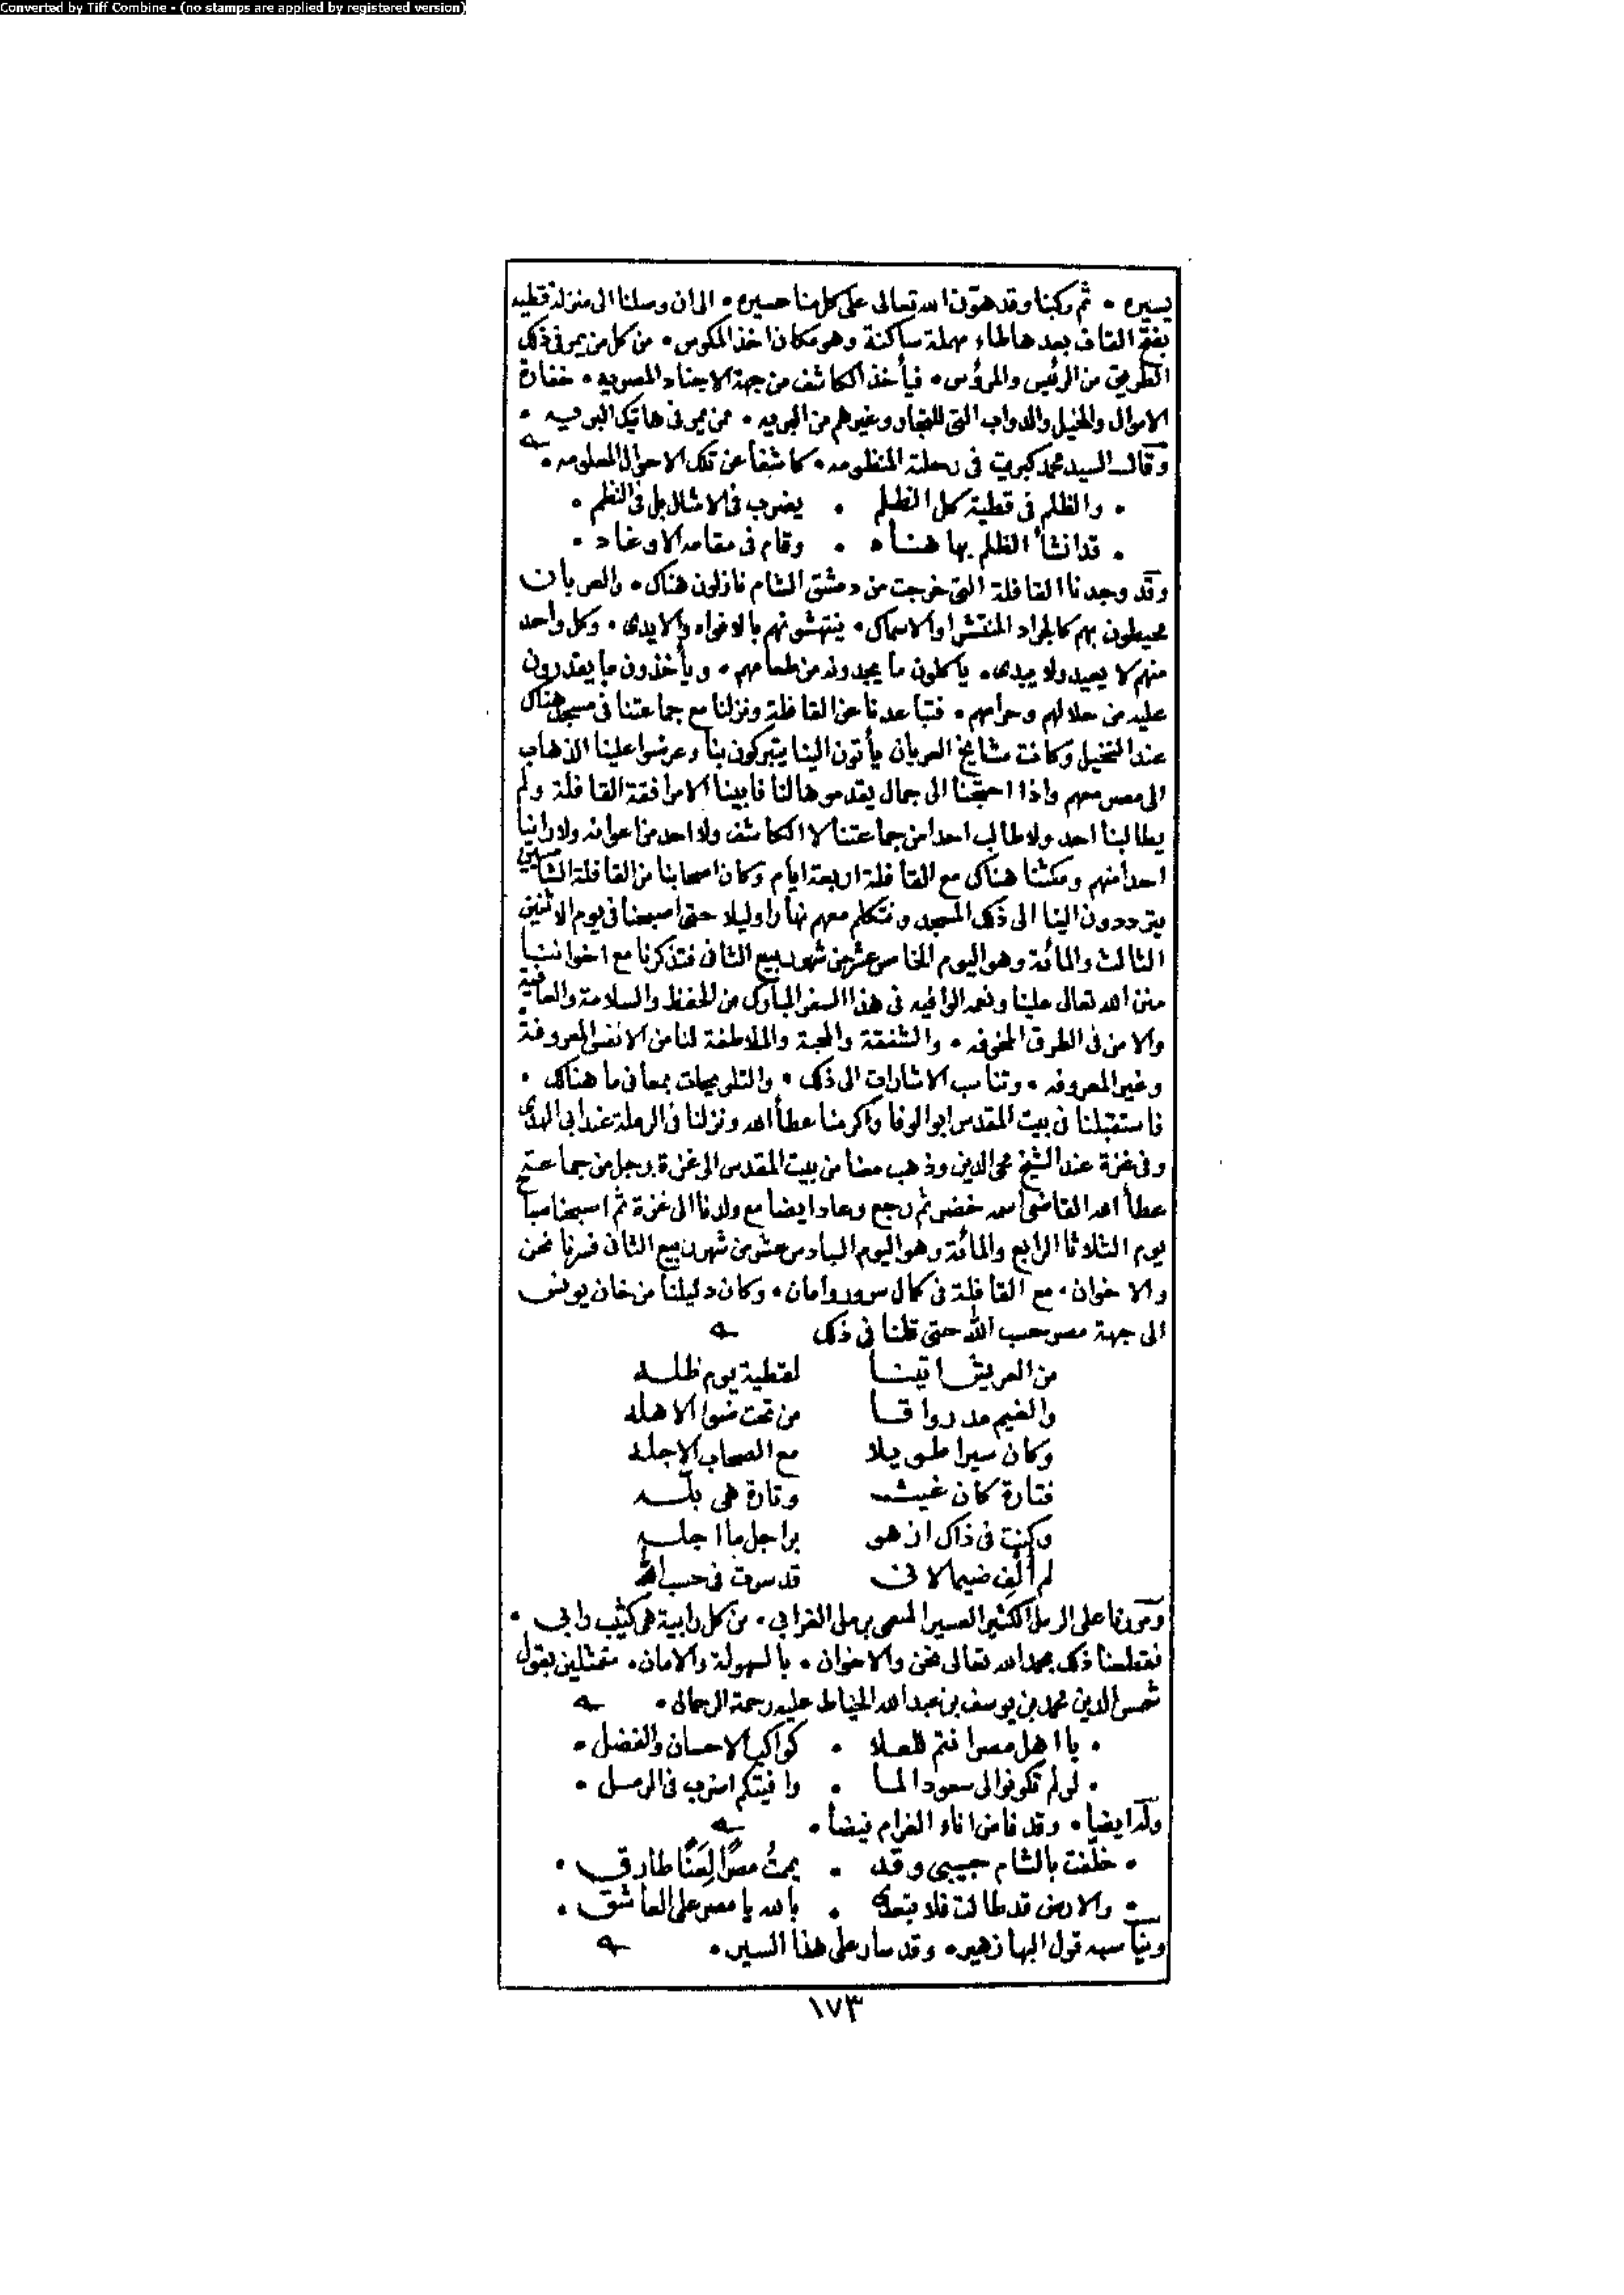 Converted by Tiff Combine - (no stamps are applied by registered version)
يسيره • ثم ركبنا وقد هوّن الله تعالى على كل منا مسيره • الى ان وصلنا الى منزلة قطيه
بفتح القاف بعدها طاء مهملة ساكنة وهو مكان اخذ المكوس • من كل من يمر في ذلك
الطريق من الرئيس والمرؤس • فيأخذ الكاشف من جهة الاجناد المصريه • خفارة
الاموال والخيل والدواب التي للتجار وغيرهم من البريه • ممن يمر في هاتيك البريه •
وقال السيد محمد كبريت في رحلته المنظومه • كاشفا عن تلك الاحوال المعلومه •
• والظلم في قطية كل الظلم • يضرب في الامثال بل في النظم •
• قد انشأ الظلم بها هناد • وقام في مقامه الاوغاد •
وقد وجدنا القافلة التي خرجت من دمشق الشام نازلون هناك • والعربان
محيطون بهم كالجراد المنتشر او الاسماك • ينتهشونهم بالافواه والايدى • وكل واحد
منهم لا يعيد ولا يبدى • يأكلون ما يجدونه من طعامهم • ويأخذون ما يقدرون
عليه من حلالهم وحرامهم • فتباعدنا عن القافلة ونزلنا مع جماعتنا في مسجد هناك
عند النخيل وكانت مشايخ العربان يأتون الينا يتبركون بنا وعرضوا علينا الذهاب
الى مصر معهم واذا احتجنا الى جمال يقدموها لنا فابينا الا مرافقة القافلة ولم
يطالبنا احد ولا طالب احدا من جماعتنا لا الكاشف ولا احد من اعوانه ولا راينا
احدا منهم ومكثنا هناك مع القافلة اربعة ايام وكان اصحابنا من القافلة الشاميين
يترددون الينا الى ذلك المسجد ونتكلم معهم نهارا وليلا حتى اصبحنا في يوم الاثنين
الثالث والمائة وهو اليوم الخامس عشر من شهر ربيع الثاني فتذكرنا مع اخواننا
منن الله تعالى علينا ونعمه الوافيه في هذا السفر المبارك من الحفظ والسلامة والعافية
والامن في الطرق المخوفه • والشفقة والمحبة والملاطفة لنا من الانفس المعروفة
وغير المعروفه • وتناسب الاشارات الى ذلك • والتلويحات بمعاني ما هنالك •
فاستقبلنا في بيت المقدس ابو الوفا واكرمنا عطأ الله ونزلنا في الرملة عند ابي الهدى
وفي غزة عند الشيخ محي الدين وذهب معنا من بيت المقدس الى غزة رجل من جماعته
عطأ الله القاضي اسمه خضر ثم رجع وعاد ايضا مع ولدنا الى غزة ثم اصبحنا صبا
يوم الثلاثا الرابع والمائة وهو اليوم السادس عشر من شهر ربيع الثاني فسرنا نحن
والاخوان • مع القافلة في كمال سرور وامان • وكان دليلنا من خان يونس
الى جهة مصر حسب الله حتى قلنا في ذلك
من العريش اتينا لقطية يوم ظله
والغيم مد رواقا من تحت ضوا الاهله
وكان سيرا طويلا مع الصحاب الاجله
فتارة كان غيث وتارة هي بله
وكنت في ذاك ازهو براجل ما اجله
لم ألف ضيما لاني قد سرت في حسب الله
ومررنا على الرمل الكثير العسير المسمى برمل الغرابي • من كل رابية هي كثيب رابي •
فقطعنا ذلك بحمد الله تعالى نحن والاخوان • بالسهولة والامان • متمثلين بقول
شمس الدين محمد بن يوسف بن عبد الله الخياط عليه رحمة الرحمان •
• يا اهل مصر انتم للعلا • كواكب الاحسان والفضل •
• لو لم تكونوا لي سعودا لما • وافيتكم اضرب في الرمل •
وله ايضا • وقد فاض اناء الغرام فيضا •
• خلفت بالشام حبيبي وقد • يممت مصرا لعنا طارق •
• والارض قد طالت فلا تبعدى • بالله يا مصر على العاشق •
ويناسبه قول البها زهير • وقد سار على هذا السير •
١٧٣